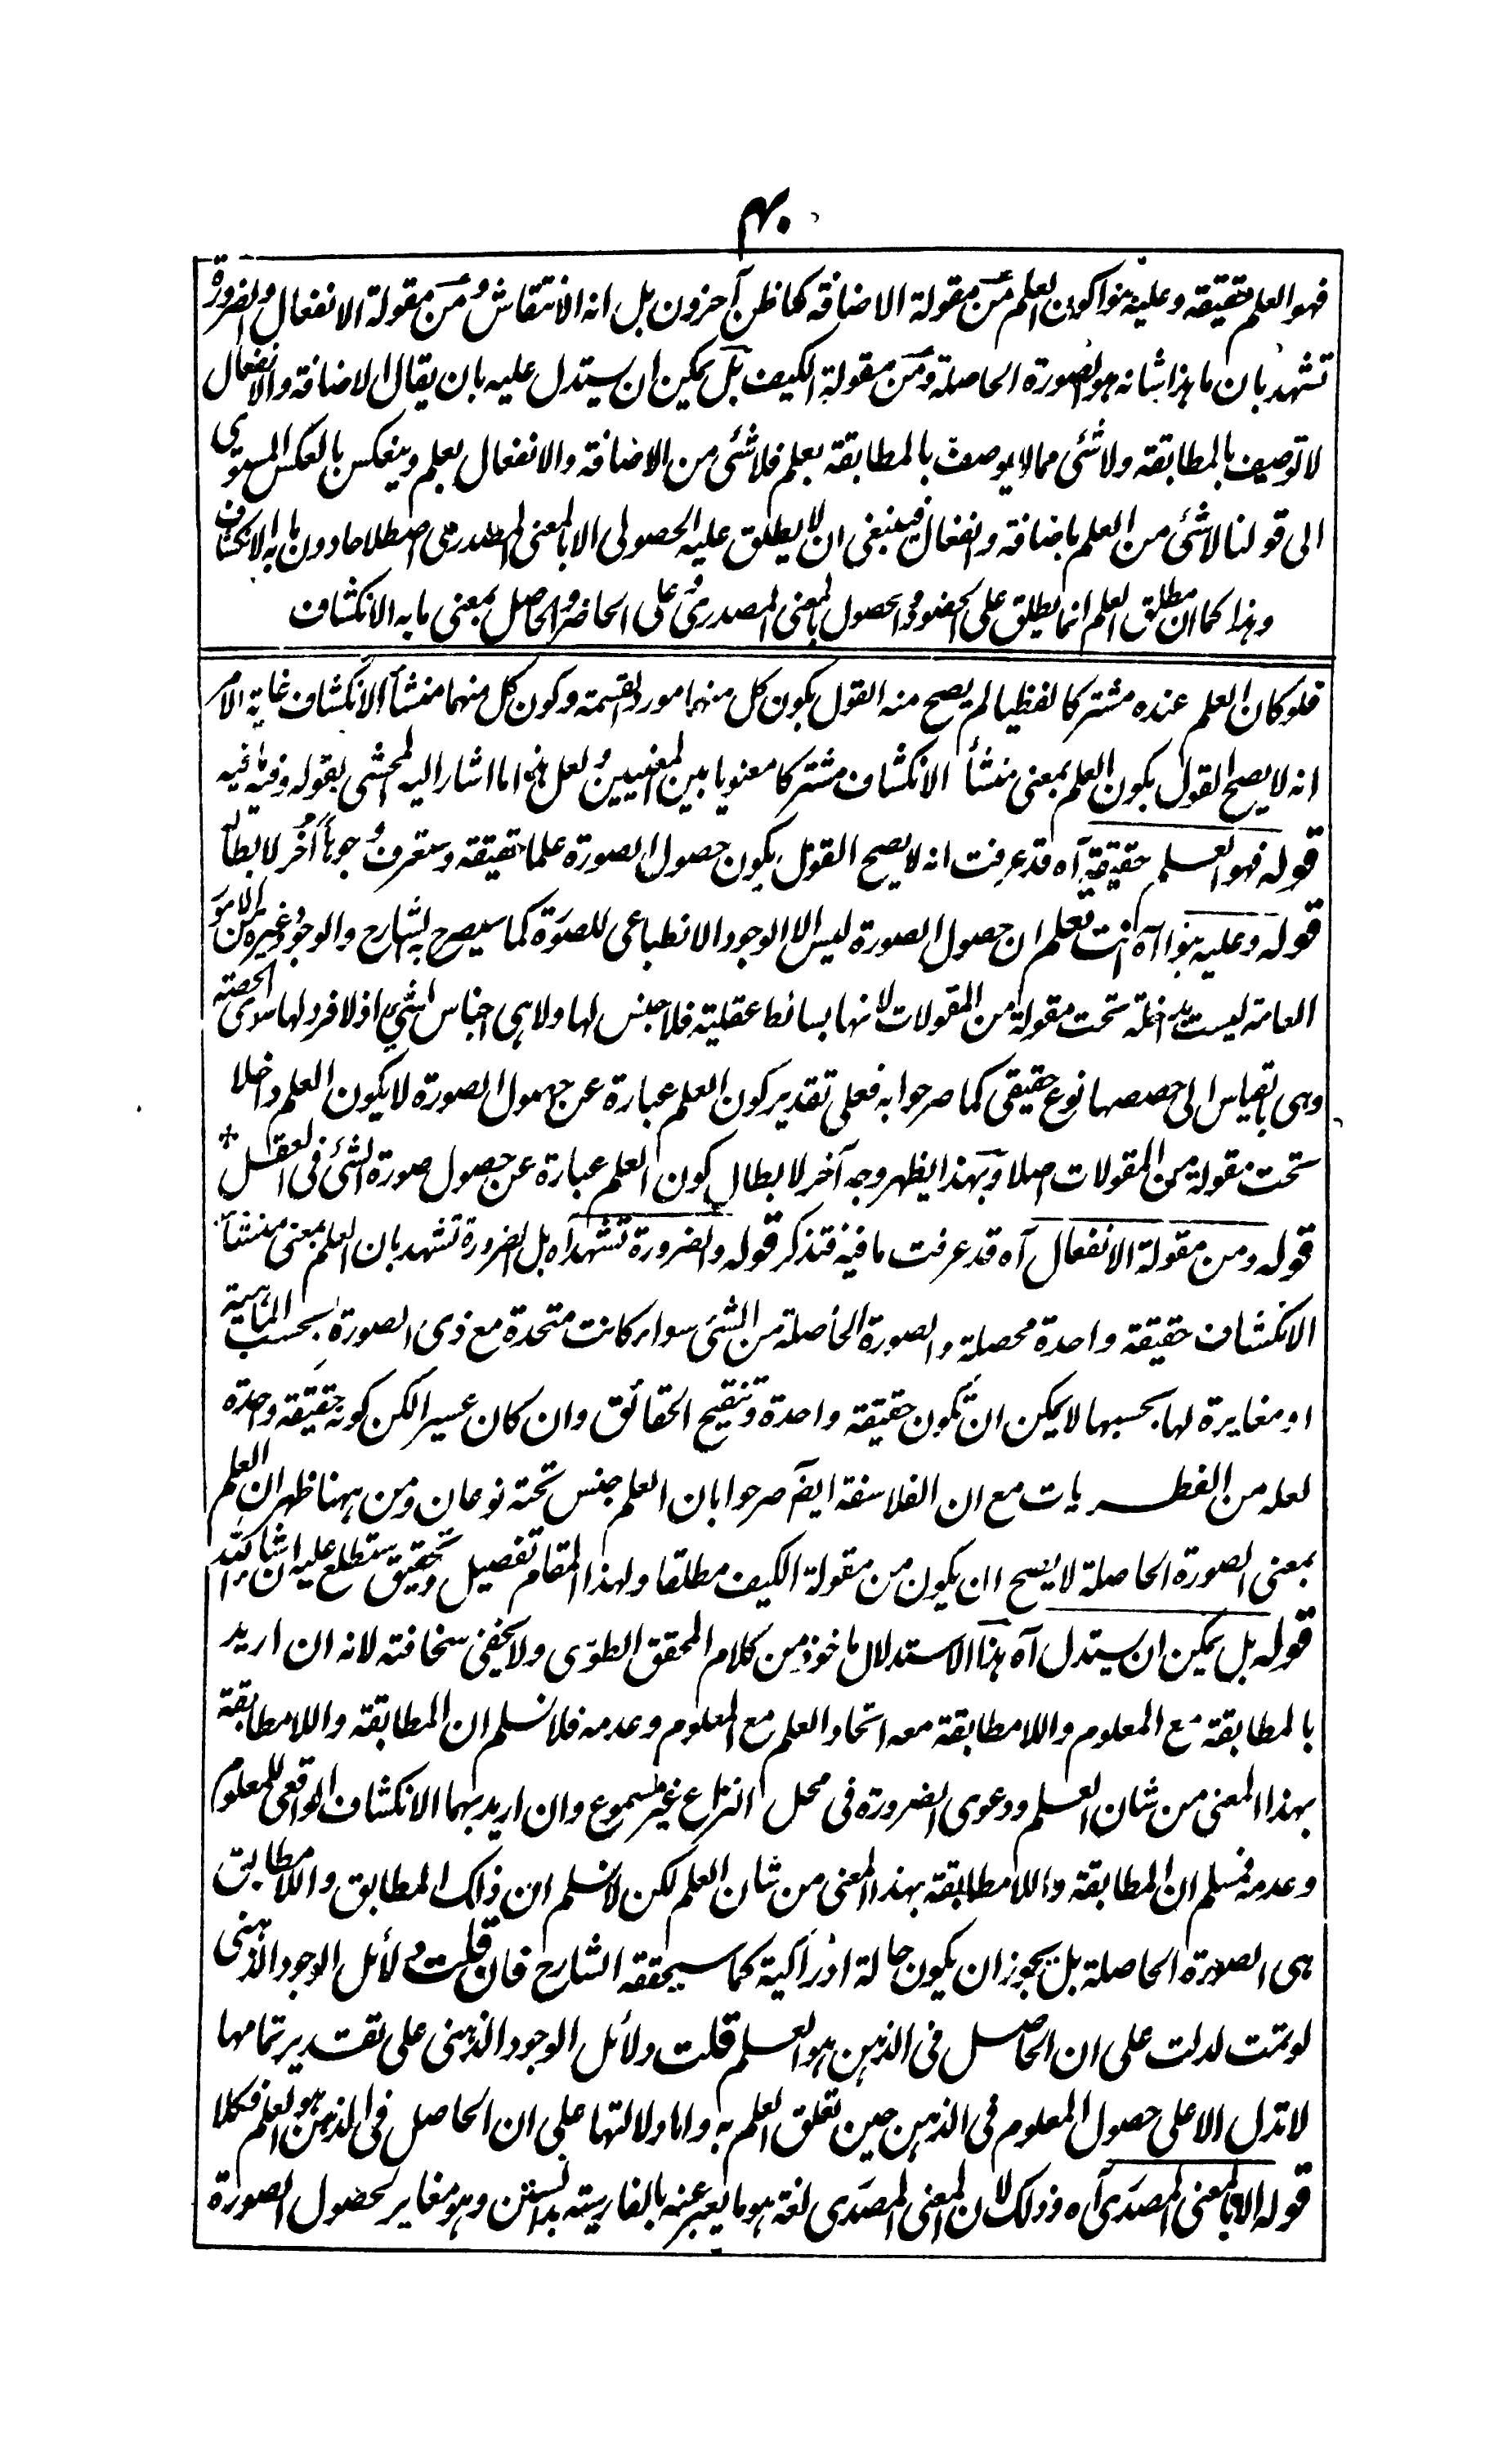 ۴۰
فهو العلم حقيقته وعليه بنوا كون العلم من مقولة الاضافه كما ظن آخرون بل انه الانتقاش ومن مقولة الانفعال والضرورة
تشهد بان ما هذا شانه هو الصورة الحاصلة ومن مقولة الكيف بل يمكن ان يستدل عليه بان يقال الاضافة والانفعال
لا توصيف بالمطابقة ولا شئ مما لا يوصف بالمطابقة بعلم فلا شئ من الاضافة والانفعال بعلم وينعكس بالعكس المستوى
الى قولنا لا شئ من العلم باضافة وانفعال فينبغى ان لا يطلق عليه الحصولى الا بالمعنى المصدرى اصطلاحا دون ما به الانكشاف
وهذا كما ان مطلق العلم انما يطلق على الحضور والحصول بالمعنى المصدرى وعلى الحاضر والحاصل بمعنى ما به الانكشاف
فلو كان العلم عنده مشتركا لفظيا لم يصح منه القول بكون كل منهما مورد القسمة وكون كل منهما منشأ الانكشاف غاية الامر
انه لا يصح القول بكون العلم بمعنى منشأ الانكشاف مشتركا معنويا بين المعنيين ولعل هذا ما اشار اليه المحشى بقوله وفيه ما فيه
قوله فهو العلم حقيقة آه قد عرفت انه لا يصح القول بكون حصول الصورة علما حقيقة وستعرف وجوها أخر لابطاله
قوله وعليه بنوا آه انت تعلم ان حصول الصورة ليس الا الوجود الانطباعى للصورة كما سيصرح به الشارح والوجود وغيره من الامور
العامة ليست بداخلة تحت مقولة من المقولات لانها بسائط عقلية فلا جنس لها ولا هى اجناس لشئ اذ لا فرد لها سوى الحصة
وهى بالقياس الى حصصها نوع حقيقى كما صرحوا به فعلى تقدير كون العلم عبارة عن حصول الصورة لا يكون العلم داخلا
تحت مقولة من المقولات اصلا وبهذا يظهر وجه آخر لابطال كون العلم عبارة عن حصول صورة الشئ فى العقل
قوله ومن مقولة الانفعال آه قد عرفت ما فيه فتذكر قوله والضرورة تشهد آه بل الضرورة تشهد بان العلم بمعنى منشأ
الانكشاف حقيقة واحدة محصلة والصورة الحاصلة من الشئ سواء كانت متحدة مع ذى الصورة بحسب الماهية
او مغايرة لها بحسبها لا يمكن ان تكون حقيقة واحدة وتنقيح الحقائق وان كان عسيرا لكن كونه حقيقة واحدة
لعله من الفطريات مع ان الفلاسفة ايضا صرحوا بان العلم جنس تحته نوعان ومن ههنا ظهر ان العلم
بمعنى الصورة الحاصلة لا يصح ان يكون من مقولة الكيف مطلقا ولهذا المقام تفصيل وتحقيق ستطلع عليه ان شاء الله
قوله بل يمكن ان يستدل آه هذا الاستدلال ماخوذ من كلام المحقق الطوسى ولا يخفى سخافته لانه ان اريد
بالمطابقة مع المعلوم واللامطابقة معه اتحاد العلم مع المعلوم وعدمه فلا نسلم ان المطابقة واللامطابقة
بهذا المعنى من شان العلم ودعوى الضرورة فى محل النزاع غير مسموع وان اريد بهما الانكشاف الواقعى للمعلوم
وعدمه فمسلم ان المطابقة واللامطابقة بهذا المعنى من شان العلم لكن لا نسلم ان ذلك المطابق واللامطابق
هى الصورة الحاصلة بل يجوز ان يكون حالة ادراكية كما سيحققه الشارح فان قلت دلائل الوجود الذهنى
لو تمت لدلت على ان الحاصل فى الذهن هو العلم قلت دلائل الوجود الذهنى على تقدير تمامها
لا تدل الا على حصول المعلوم فى الذهن حين تعلق العلم به واما دلالتها على ان الحاصل فى الذهن هو العلم فكلا
قوله الا بالمعنى المصدرى آه وذلك لان المعنى المصدرى لغة هو ما يعبر عنه بالفارسية بدانستن وهو مغاير لحصول الصورة